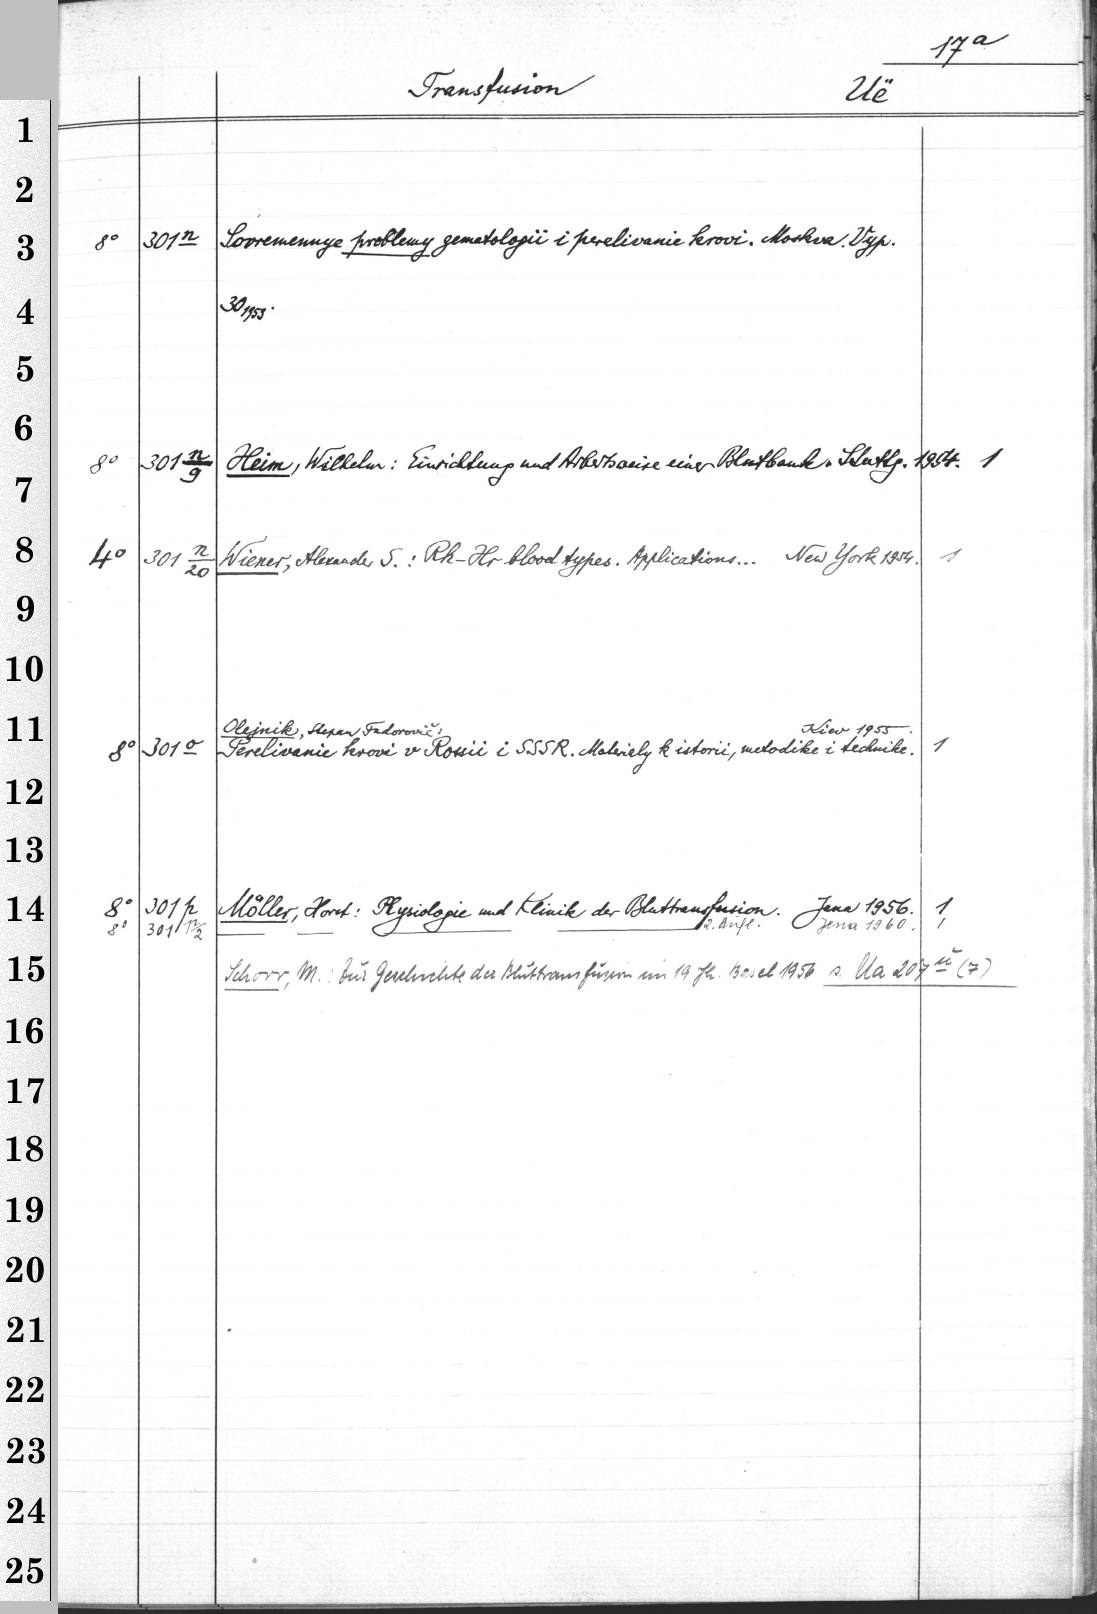 17a
Transfusion Uë
1
2
3 8° 301 n Sovremennye problemy gematologii i perelivanie krovi. Moskva. Vyp.
4 30 1953.
5
6
8° 301 n/9 Heim, Wilhelm: Einrichtung und Arbeitsweise einer Blutbank. Stuttg. 1954. 1
7
8 4° 301 n/20 Wiener, Alexander S.: Rh-Hr blood types. Applications... New York 1954. 1
9
10
11 Olejnik, Stepan Fadorovič: Kiev 1955.
8° 301 o Perelivanie krovi v Rossii i SSSR. Materialy k istorii, metodike i technike. 1
12
13
14 8° 301 p Möller, Horst: Physiologie und Klinik der Bluttransfusion. Jena 1956. 1
8° 301 p/2 2. Aufl. Jena 1960. 1
15 Schorr, M.: Zur Geschichte der Bluttransfusion im 19 Jh. Basel 1956 s. Ua 207 ü (7)
16
17
18
19
20
21
22
23
24
25